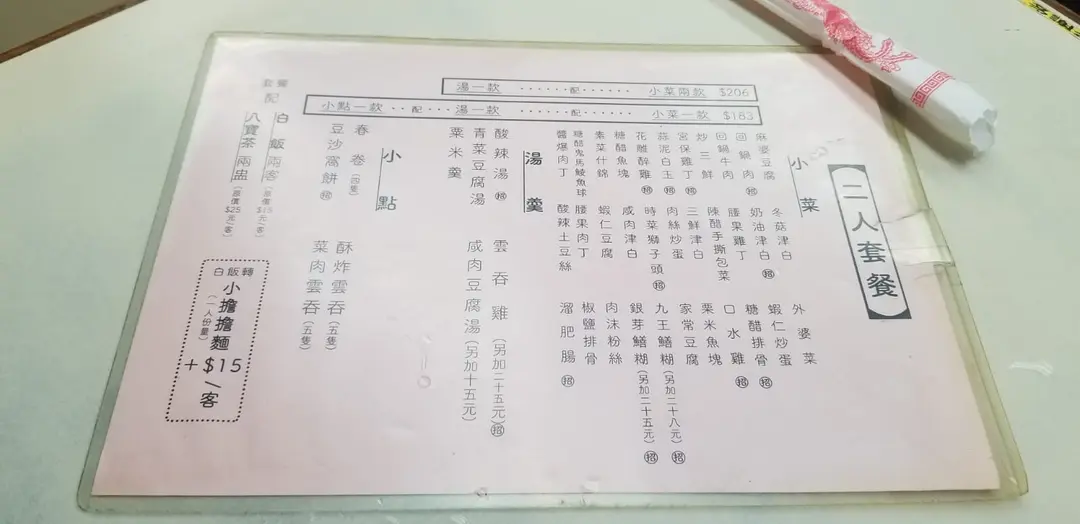 湯一款 ······配······ 小菜兩款 $206
小點一款 ··配·· 湯一款 ······配······ 小菜一款 $183
【二人套餐】
小菜
麻婆豆腐
回鍋肉 招
回鍋牛肉
炒三鮮
宮保雞丁 招
蒜泥白玉 招
花雕醉雞 招
糖醋魚塊
素菜什錦
糖醋鬼馬鯪魚球
醬爆肉丁
冬菇津白
奶油津白 招
腰果雞丁
陳醋手撕包菜
三鮮津白
肉絲炒蛋
時菜獅子頭 招
咸肉津白
蝦仁豆腐
腰果肉丁
酸辣土豆絲
外婆菜
蝦仁炒蛋
糖醋排骨 招
口水雞 招
栗米魚塊
家常豆腐
九王鱔糊(另加二十八元) 招
銀芽鱔糊(另加二十五元) 招
肉沫粉絲
椒鹽排骨
溜肥腸 招
湯羹
酸辣湯 招
青菜豆腐湯
粟米羹
雲吞雞(另加二十五元) 招
咸肉豆腐湯(另加十五元)
小點
春卷(四隻)
豆沙窩餅 招
酥炸雲吞(五隻)
菜肉雲吞(五隻)
套餐配
白飯兩客(原價$15元/客)
八寶茶兩盅(原價$25元/客)
白飯轉
小擔擔麵
(一人份量)
+$15/客